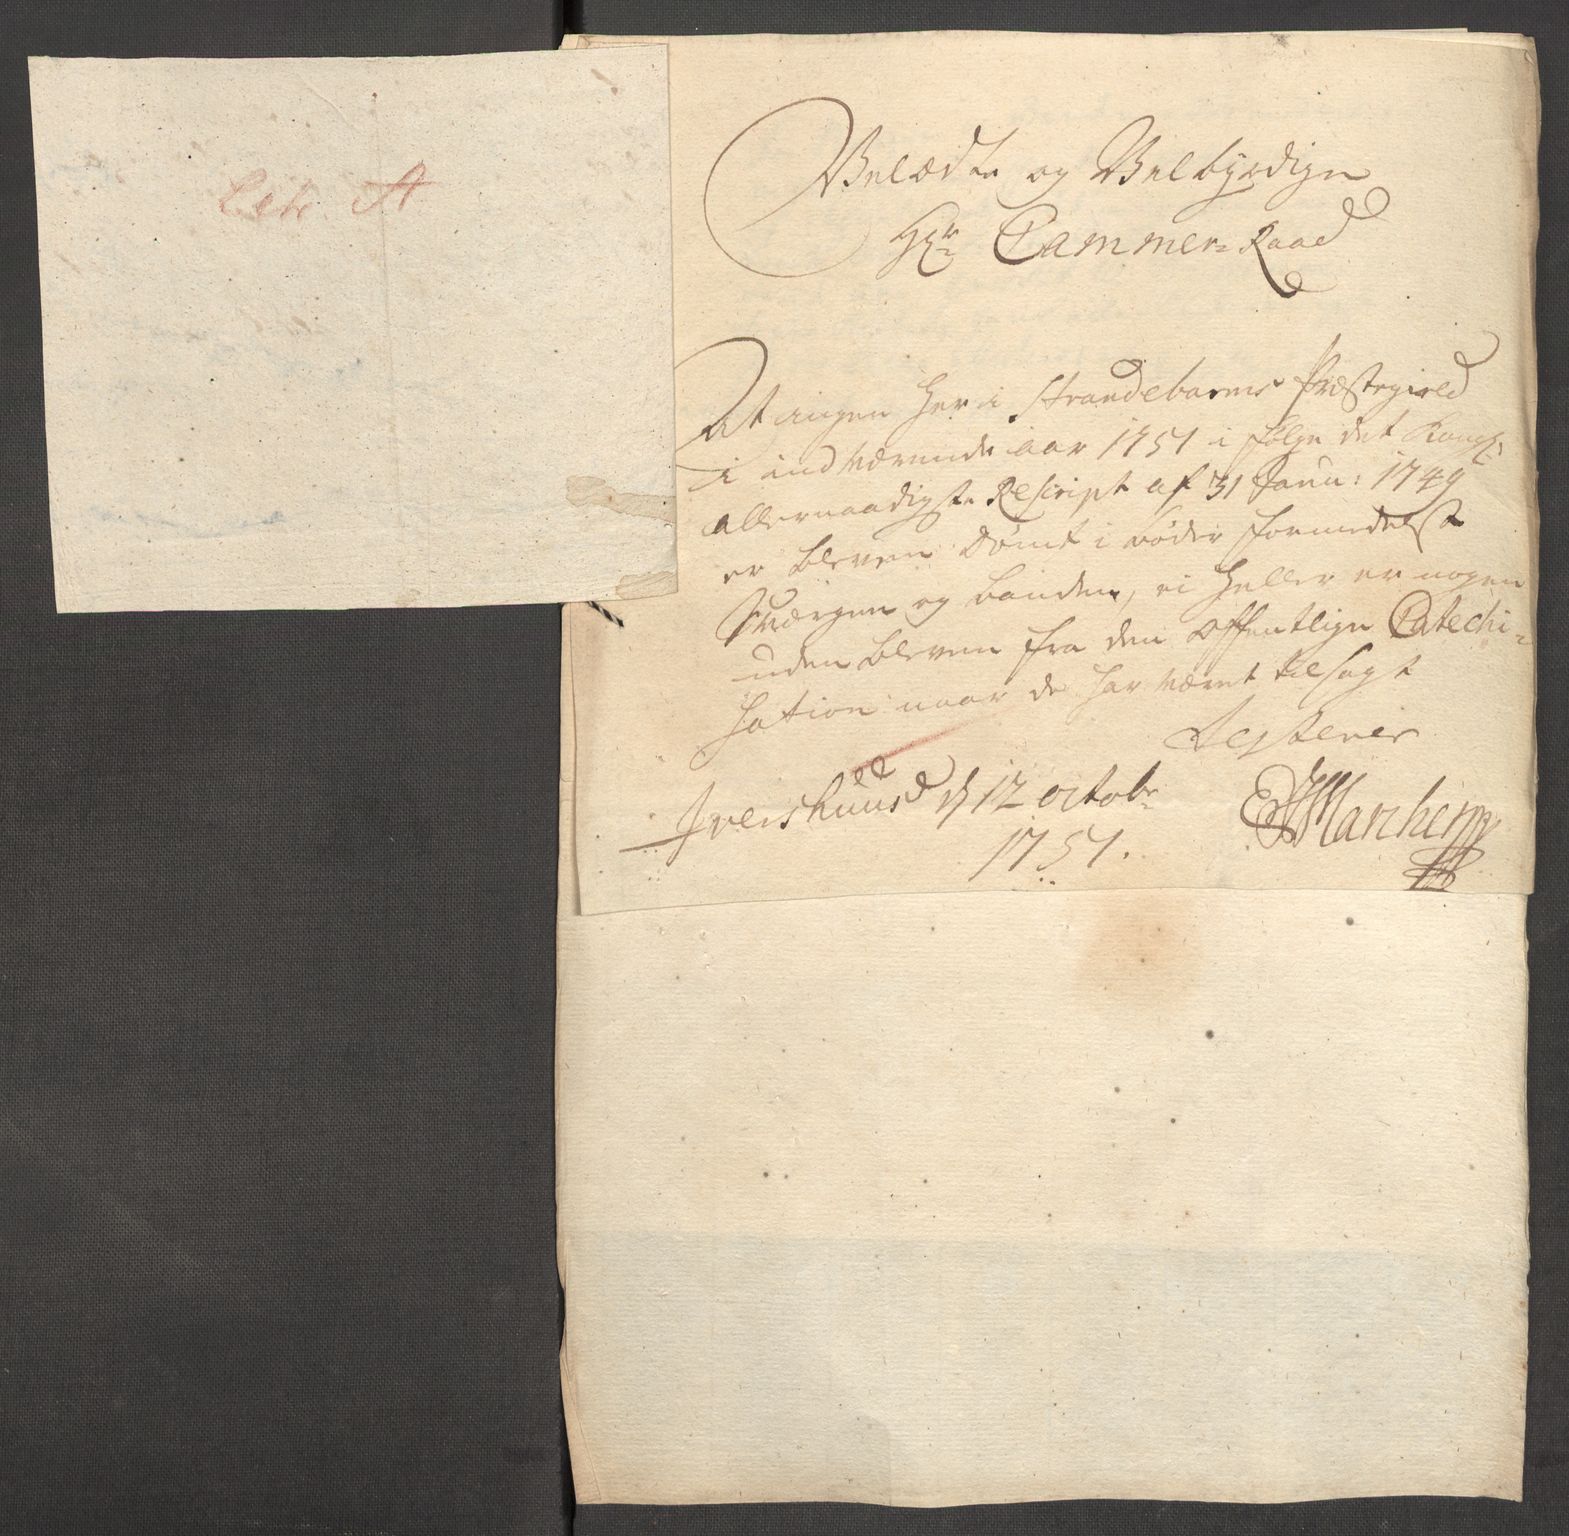 Litr. A
Velædle og Velbyrdige
Hr. Cammer-Raad
At ingen her i Strandebarms Præstegield
i indværende aar 1751 i følge det Kongl:
allernaadigste Rescript af 31 Janu: 1749
er bleven dømt i bøder formedelst
Sværgen og banden, ei heller er nogen
uden bleven fra den offentlige Catechi-
sation naar de har været tilsagt
Testerer
Ivershuus d 12 octobr
1751.